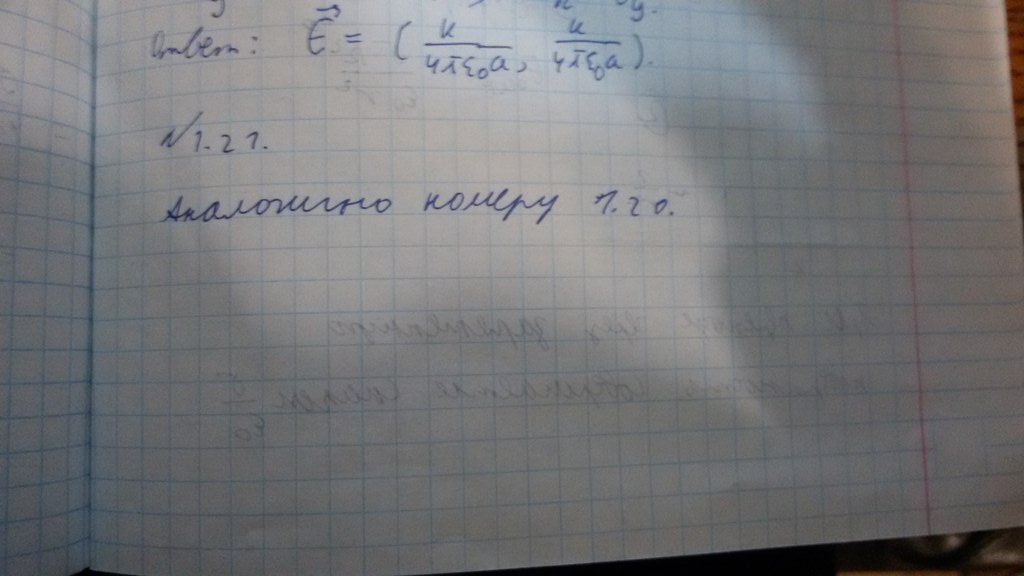 Ответ: E⃗ = ( к/4πε₀a, к/4πε₀a ).
N1.21.
Аналогично номеру 1.20.